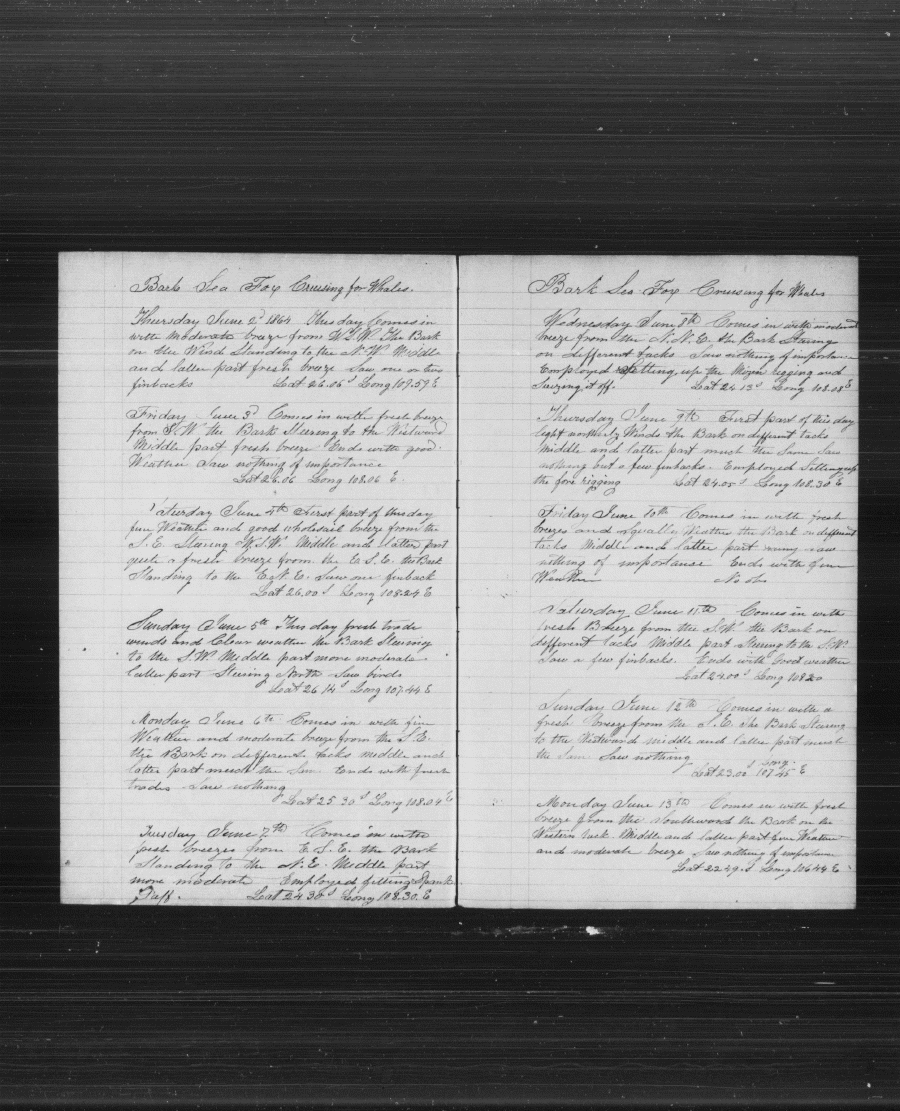 Bark Sea Fox Cruising for Whales.
Thursday June 2d 1864 This day Comes in
with moderate breeze from W.S.W. The Bark
on the Wind Standing to the N.W. Middle
and latter part fresh breeze Saw one or two
finbacks Lat 26.06 S Long 109.59 E
Friday June 3d Comes in with fresh breeze
from S.W. the Bark Steering to the Westward
Middle part fresh breeze Ends with good
Weather Saw nothing of importance
Lat 26.06 Long 108.06 E
Saturday June 4th First part of this day
fine Weather and good wholesail breeze from the
S.E. Steering W.S.W. Middle and latter part
quite a fresh breeze from the E.S.E. the Bark
Standing to the E.N.E. Saw one finback
Lat 26.00 S Long 108.24 E
Sunday June 5th This day fresh trade
winds and Clear weather the Bark Steering
to the S.W. Middle part more moderate
latter part Steering North Saw birds
Lat 26.14 S Long 107.44 E
Monday June 6th Comes in with fine
Weather and moderate breeze from the S.E.
the Bark on different tacks middle and
latter part much the Same Ends with fresh
trades Saw nothing
Lat 25.30 S Long 108.09 E
Tuesday June 7th Comes in with
fresh breezes from E.S.E. the Bark
Standing to the N.E. Middle part
more moderate Employed fitting Spunk
Gaff. Lat 24 30 S Long 108.30. E
Bark Sea Fox Cruising for Whales
Wednesday June 8th Comes in with moderate
breeze from the N.N.E. the Bark Steering
on different tacks Saw nothing of importance
Employed Setting up the Mizen rigging and
Seizing it off. Lat 24 13 S Long 108.08 E
Thursday June 9th First part of this day
light northerly Winds the Bark on different tacks
middle and latter part much the Same Saw
nothing but a few finbacks. Employed Setting up
the fore rigging Lat 24.05 S Long 108.30 E
Friday June 10th Comes in with fresh
breezes and squally Weather the Bark on different
tacks Middle and latter part saw
nothing of importance Ends with fine
Weather No obs
Saturday June 11th Comes in with
fresh Breeze from the S.W. the Bark on
different tacks Middle part Steering to the S.W.
Saw a few finbacks. Ends with Good weather
Lat 24.00 S Long 108.20
Sunday June 12th Comes in with a
fresh breeze from the S.E. The Bark Steering
to the Westward middle and latter part much
the Same Saw nothing
Lat 23.00 S Long. 107.45 E
Monday June 13th Comes in with fresh
breeze from the Southward the Bark on the
Western tack. Middle and latter part fine Weather
and moderate breeze Saw nothing of importance
Lat 22.29. S Long 106 44 E